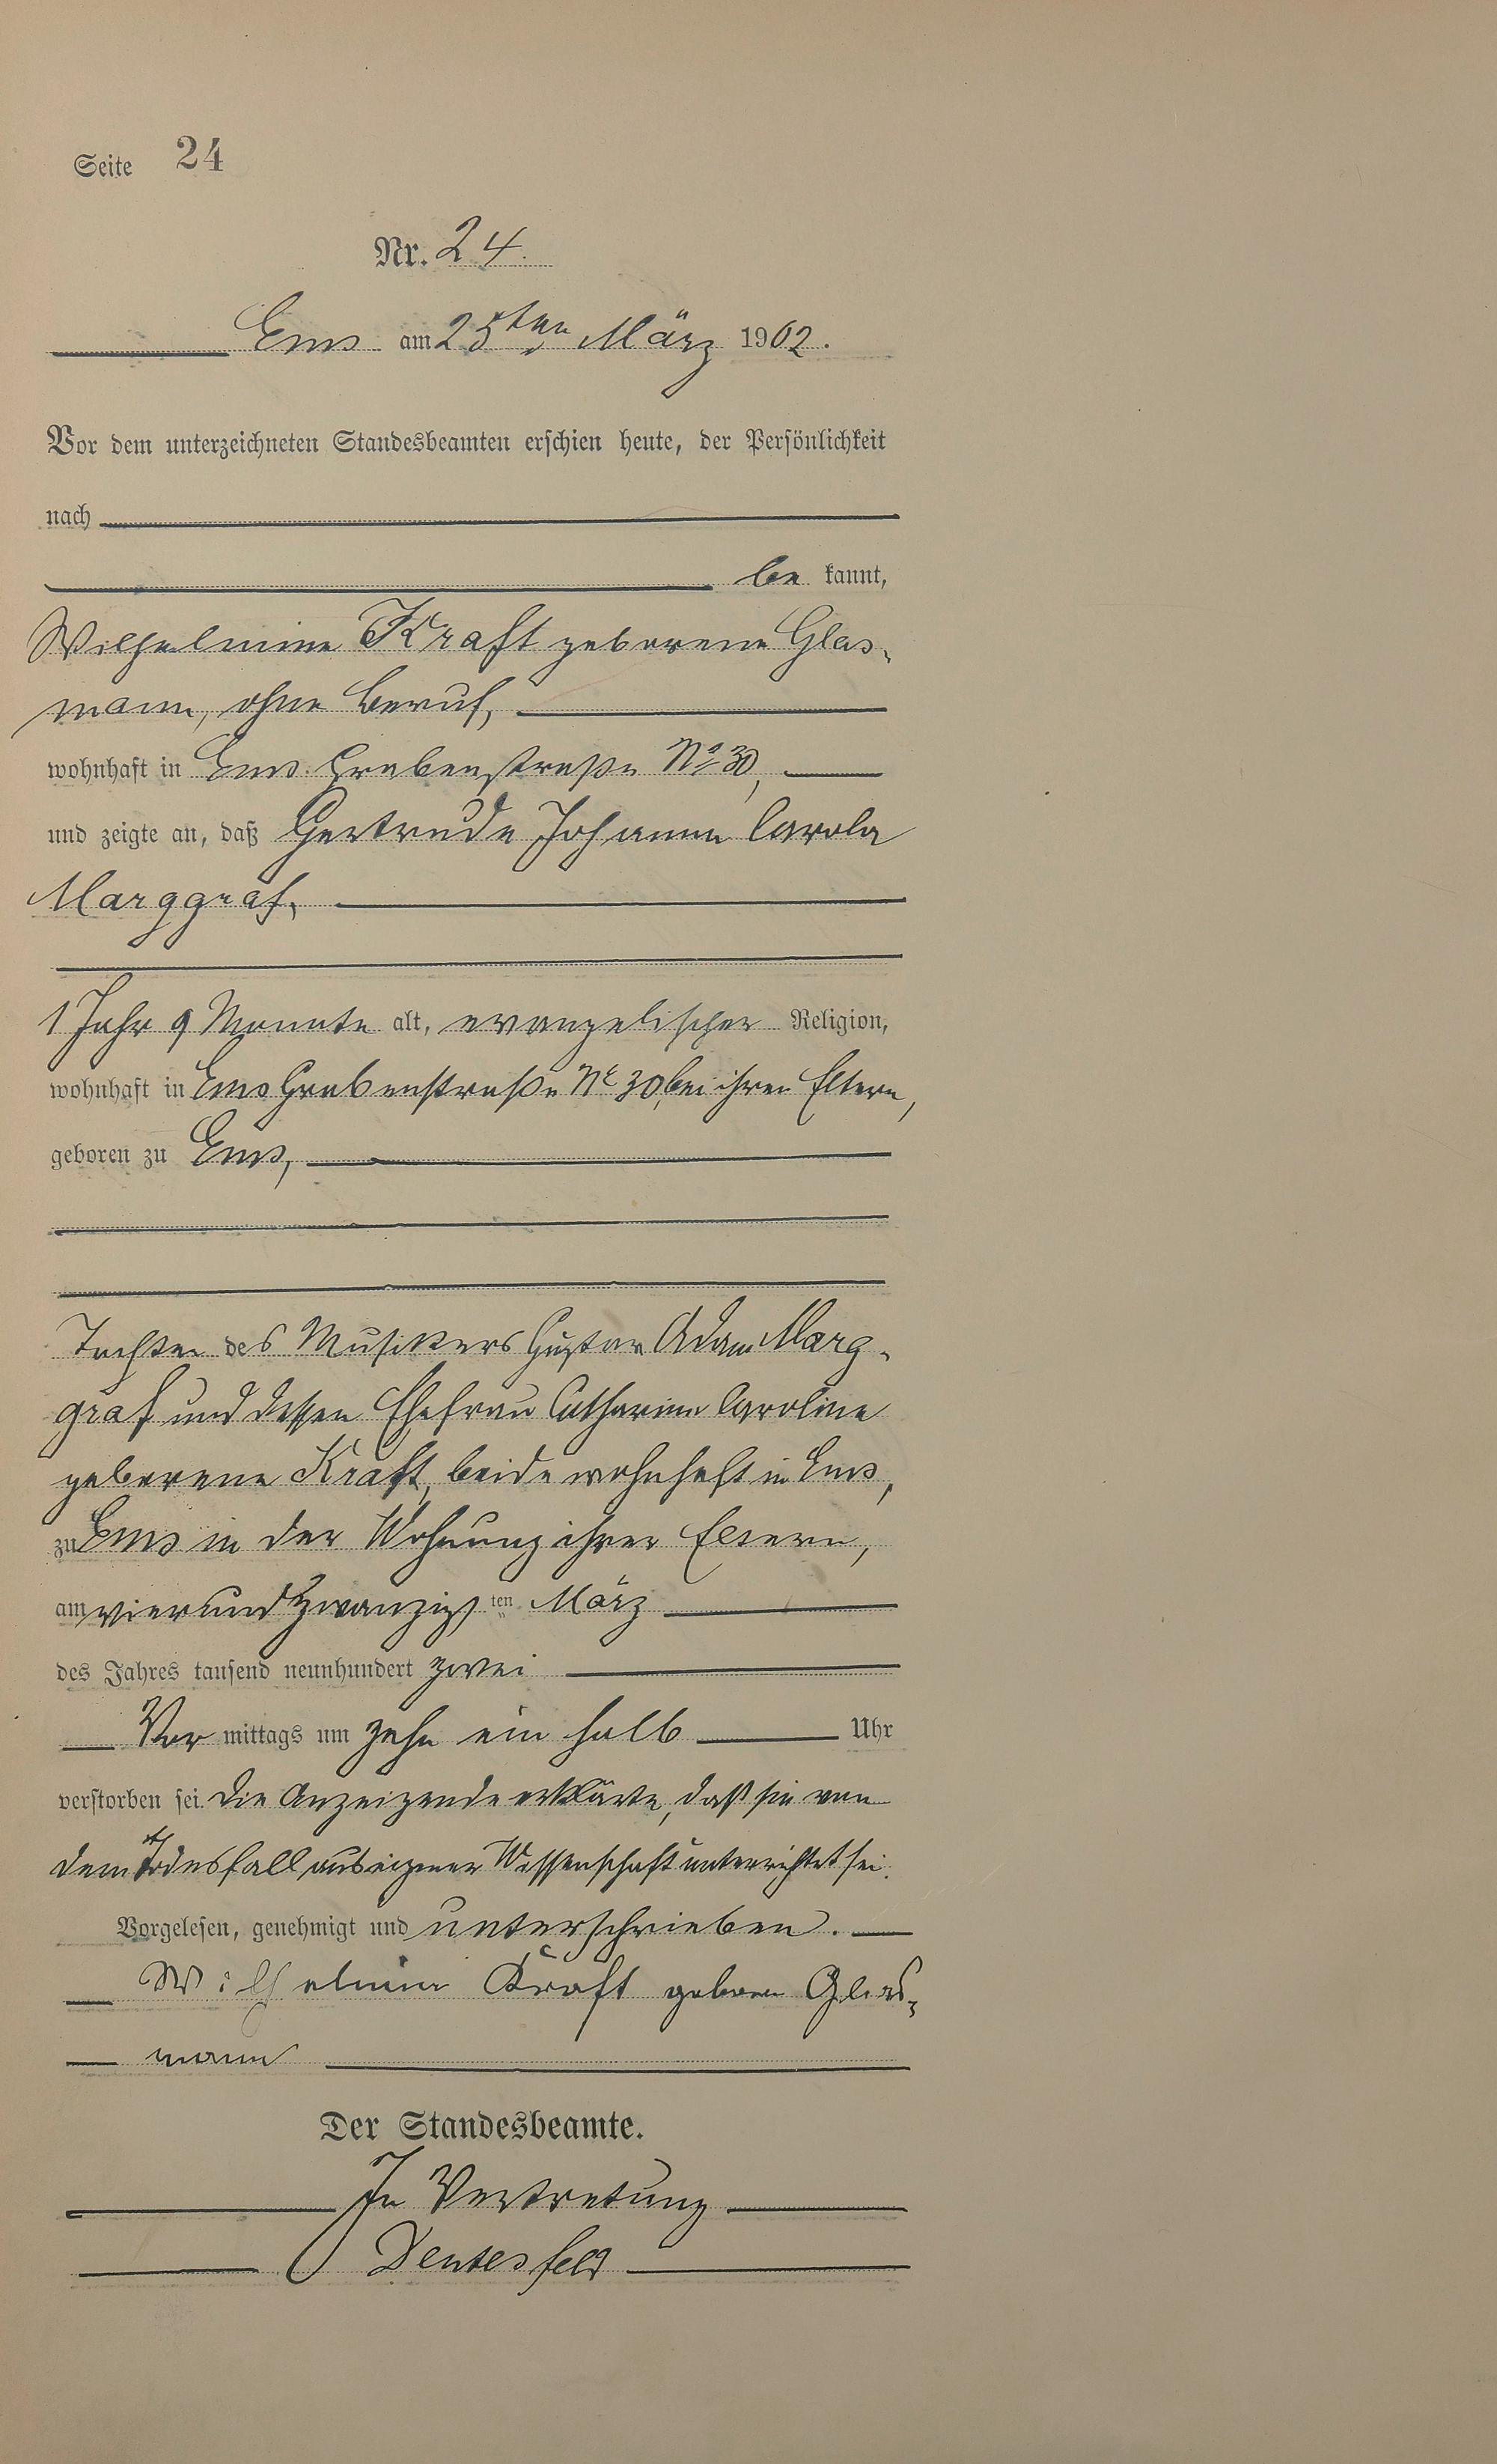 Seite 24
Nr. 24.
Ems am 25ten März 1902.
Vor dem unterzeichneten Standesbeamten erschien heute, der Persönlichkeit
nach
be kannt,
Wilhelmine Kraft geborene Glas-
mann, ohne Beruf,
wohnhaft in Ems Grabenstraße No 30,
und zeigte an, daß Gertrude Johanna Carola
Marggraf,
1 Jahr 9 Monate alt, evangelischer Religion,
wohnhaft in Ems Grabenstraße No 30, bei ihren Eltern,
geboren zu Ems,
Tochter des Musikers Gustav Adam Marg-
graf und dessen Ehefrau Catharina Caroline
geborene Kraft, beide wohnhaft in Ems,
zu Ems in der Wohnung ihrer Eltern,
am vierundzwanzigsten März
des Jahres tausend neunhundert zwei
Vor mittags um zehn ein halb Uhr
verstorben sei. Die Anzeigende erklärte, daß sie von
dem Todesfall aus eigener Wissenschaft unterrichtet sei.
Vorgelesen, genehmigt und unterschrieben.
Wilhelmine Kraft geboren Glas-
mann
Der Standesbeamte.
In Vertretung